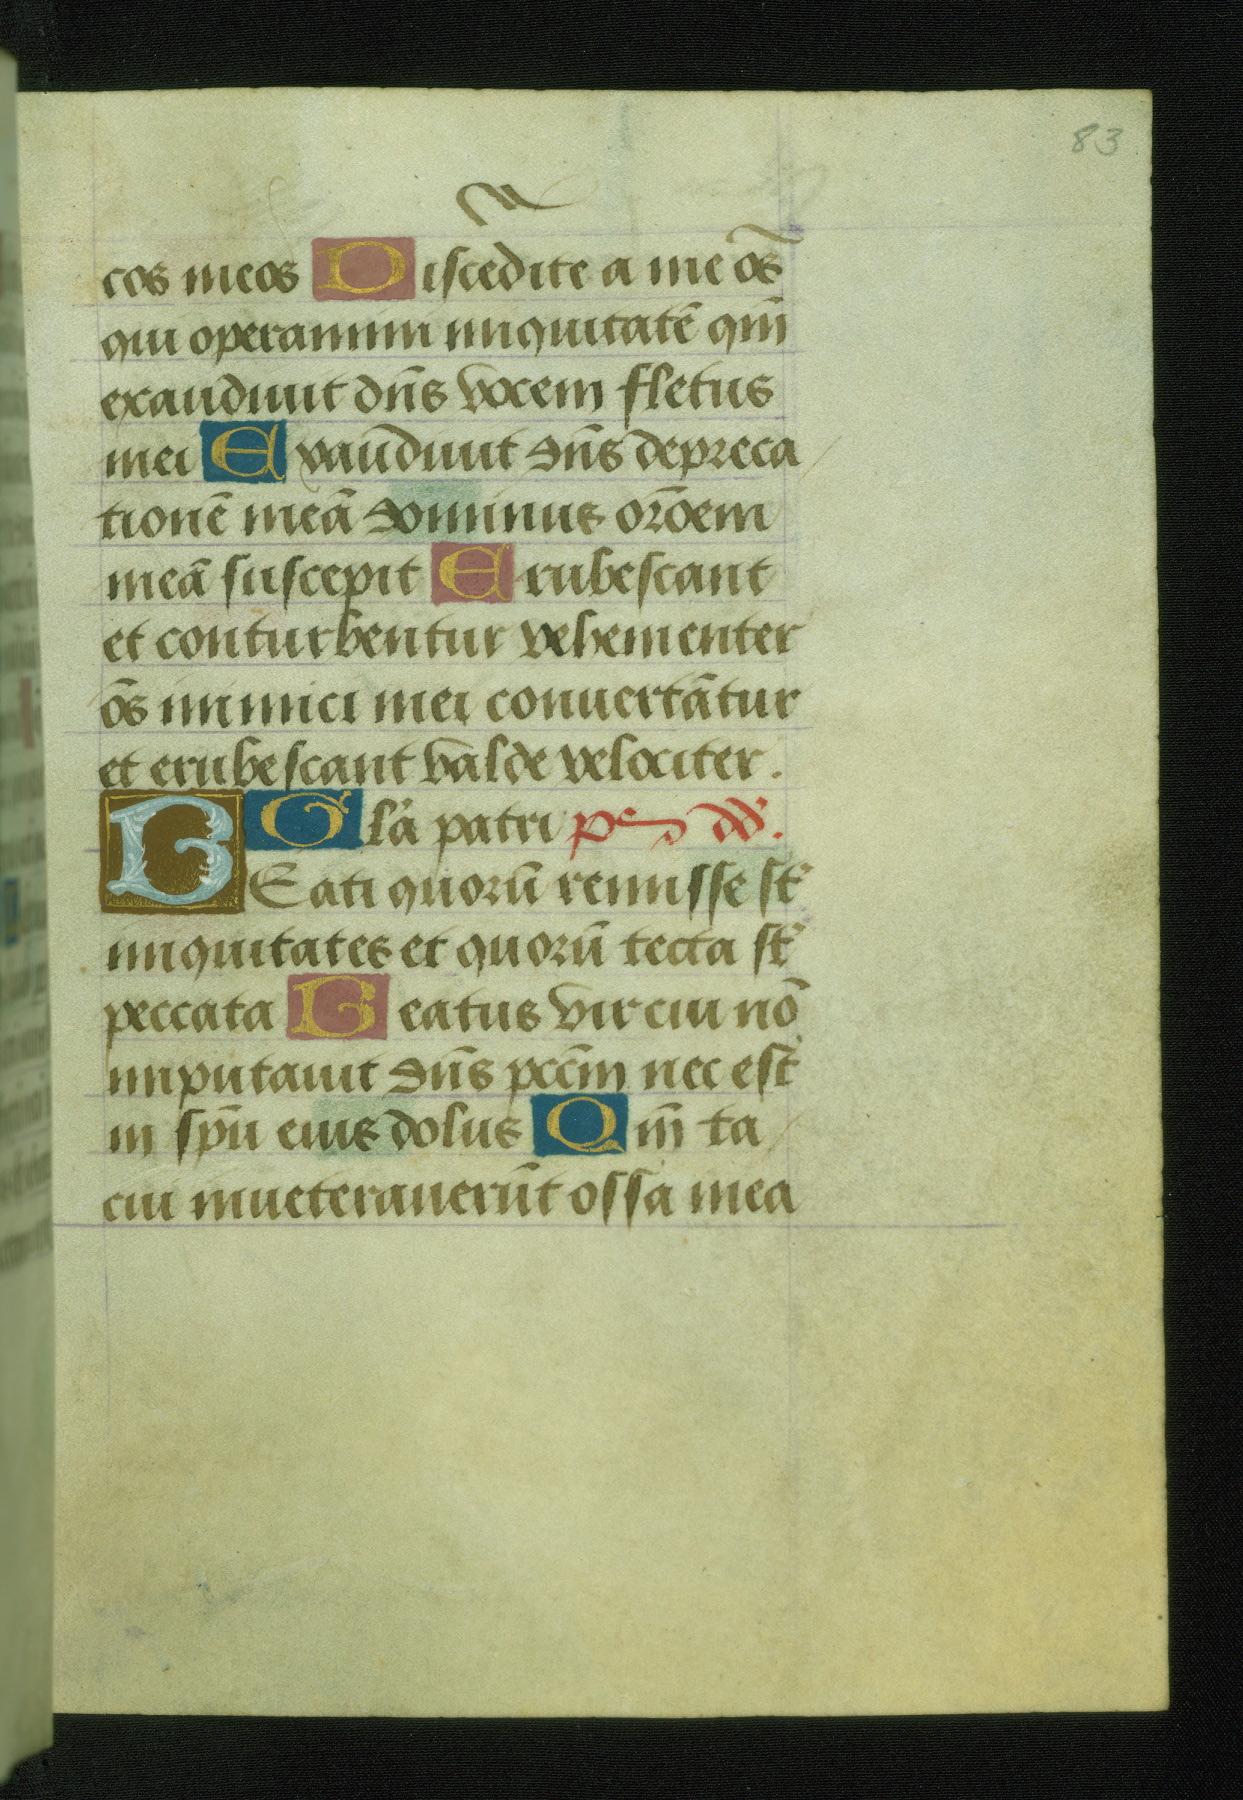 83
cos meos Discedite a me oēs
qui operamini iniquitatē qm̄
exaudiuit dn̄s vocem fletus
mei Exaudiuit dn̄s depreca
tionē meā dominus or̄oem
meā suscepit Erubescant
et conturbentur vehementer
oēs inimici mei conuertātur
et erubescant valde velociter.
Glā patri ps dd.
BEati quorū remisse st̄
iniquitates et quorū tecta st̄
peccata Beatus vir cui nō
imputauit dn̄s pccm̄ nec est
in spū eius dolus Qm̄ ta
cui inueterauerūt ossa mea